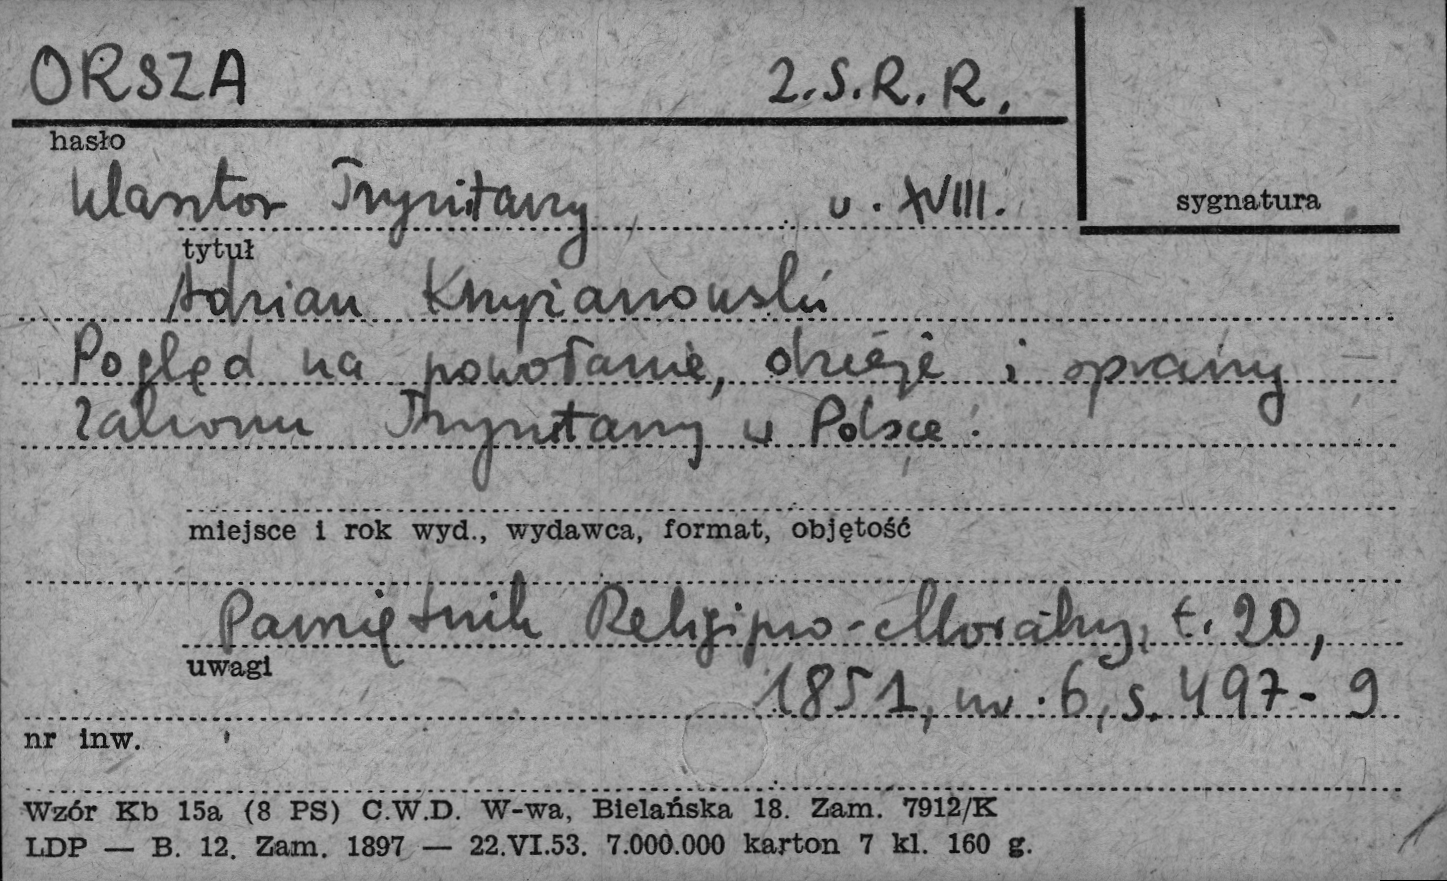 ORSZA Z.S.R.R.
hasło
klasztor Trynitarzy w. XVIII.
sygnatura
tytuł
Adrian Krzyżanowski
Pogląd na powołanie, dzieje i sprawy
Zakonu Trynitarzy w Polsce.
miejsce i rok wyd., wydawca, format, objętość
Pamiętnik Religijno-Moralny, t. 20,
uwagi
1851, nr. 6, s. 497-9
nr inw.
Wzór Kb 15a (8 PS) C.W.D. W-wa, Bielańska 18. Zam. 7912/K
LDP — B. 12. Zam. 1897 — 22.VI.53. 7.000.000 karton 7 kl. 160 g.